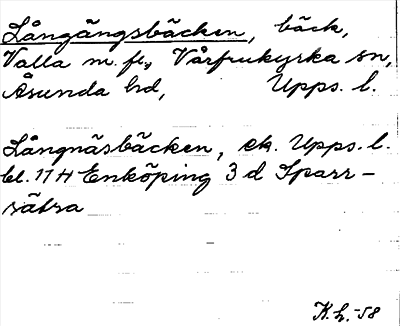 Långängsbäcken, bäck,
Valla m. fl., Vårfrukyrka sn,
Åsunda hd, Upps. l.
Långnäsbäcken, ek. Upps. l.
bl. 11 H Enköping 3 d Sparr-
sätra
K.h. -58